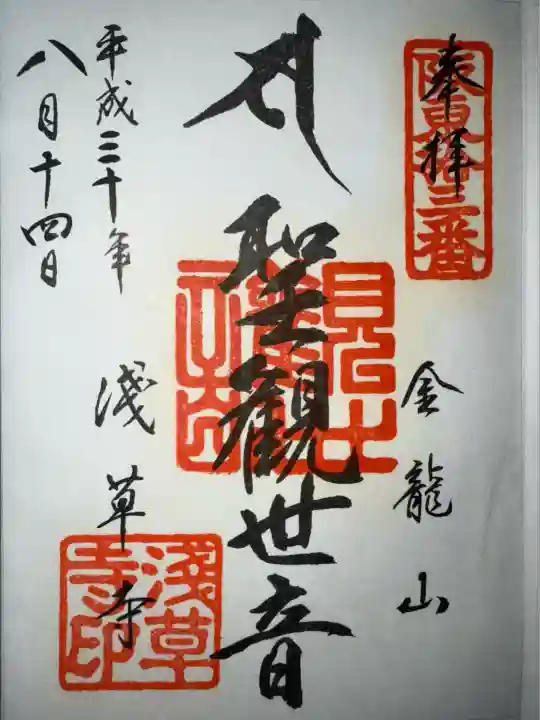 奉拝
坂東拾三番
金龍山
聖観世音
浅草寺
淺草寺印
平成三十年
八月十四日